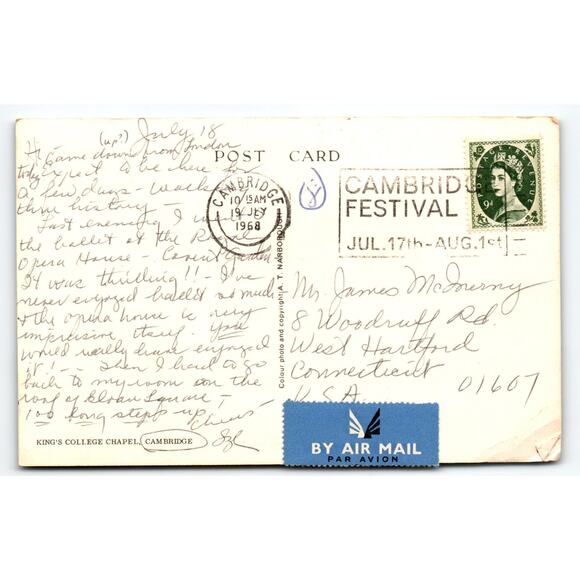 (up?) July 18
Hi - Came down from London
today Expect to be here for
a few days - Walk
thru history -
Last evening I was
the ballet at the Royal
Opera House - Covent Garden
It was thrilling!! - I've
never enjoyed ballet so much
& the opera house is very
impressive itself. You
would really have enjoyed
it! - Then I had to go
back to my room on the
roof of Sloane Square -
100 long steps up -
Cheers -
KING'S COLLEGE CHAPEL, CAMBRIDGE
POST CARD
Colour photo and copyright A. T. NARBOROUGH
CAMBRIDGE
10 15 AM
19 JLY
1968
CAMBRIDGE
FESTIVAL
JUL. 17th - AUG. 1st
POSTAGE REVENUE
9D
Mr. James McInerny
8 Woodruff Rd.
West Hartford
Connecticut 01607
U.S.A.
BY AIR MAIL
PAR AVION